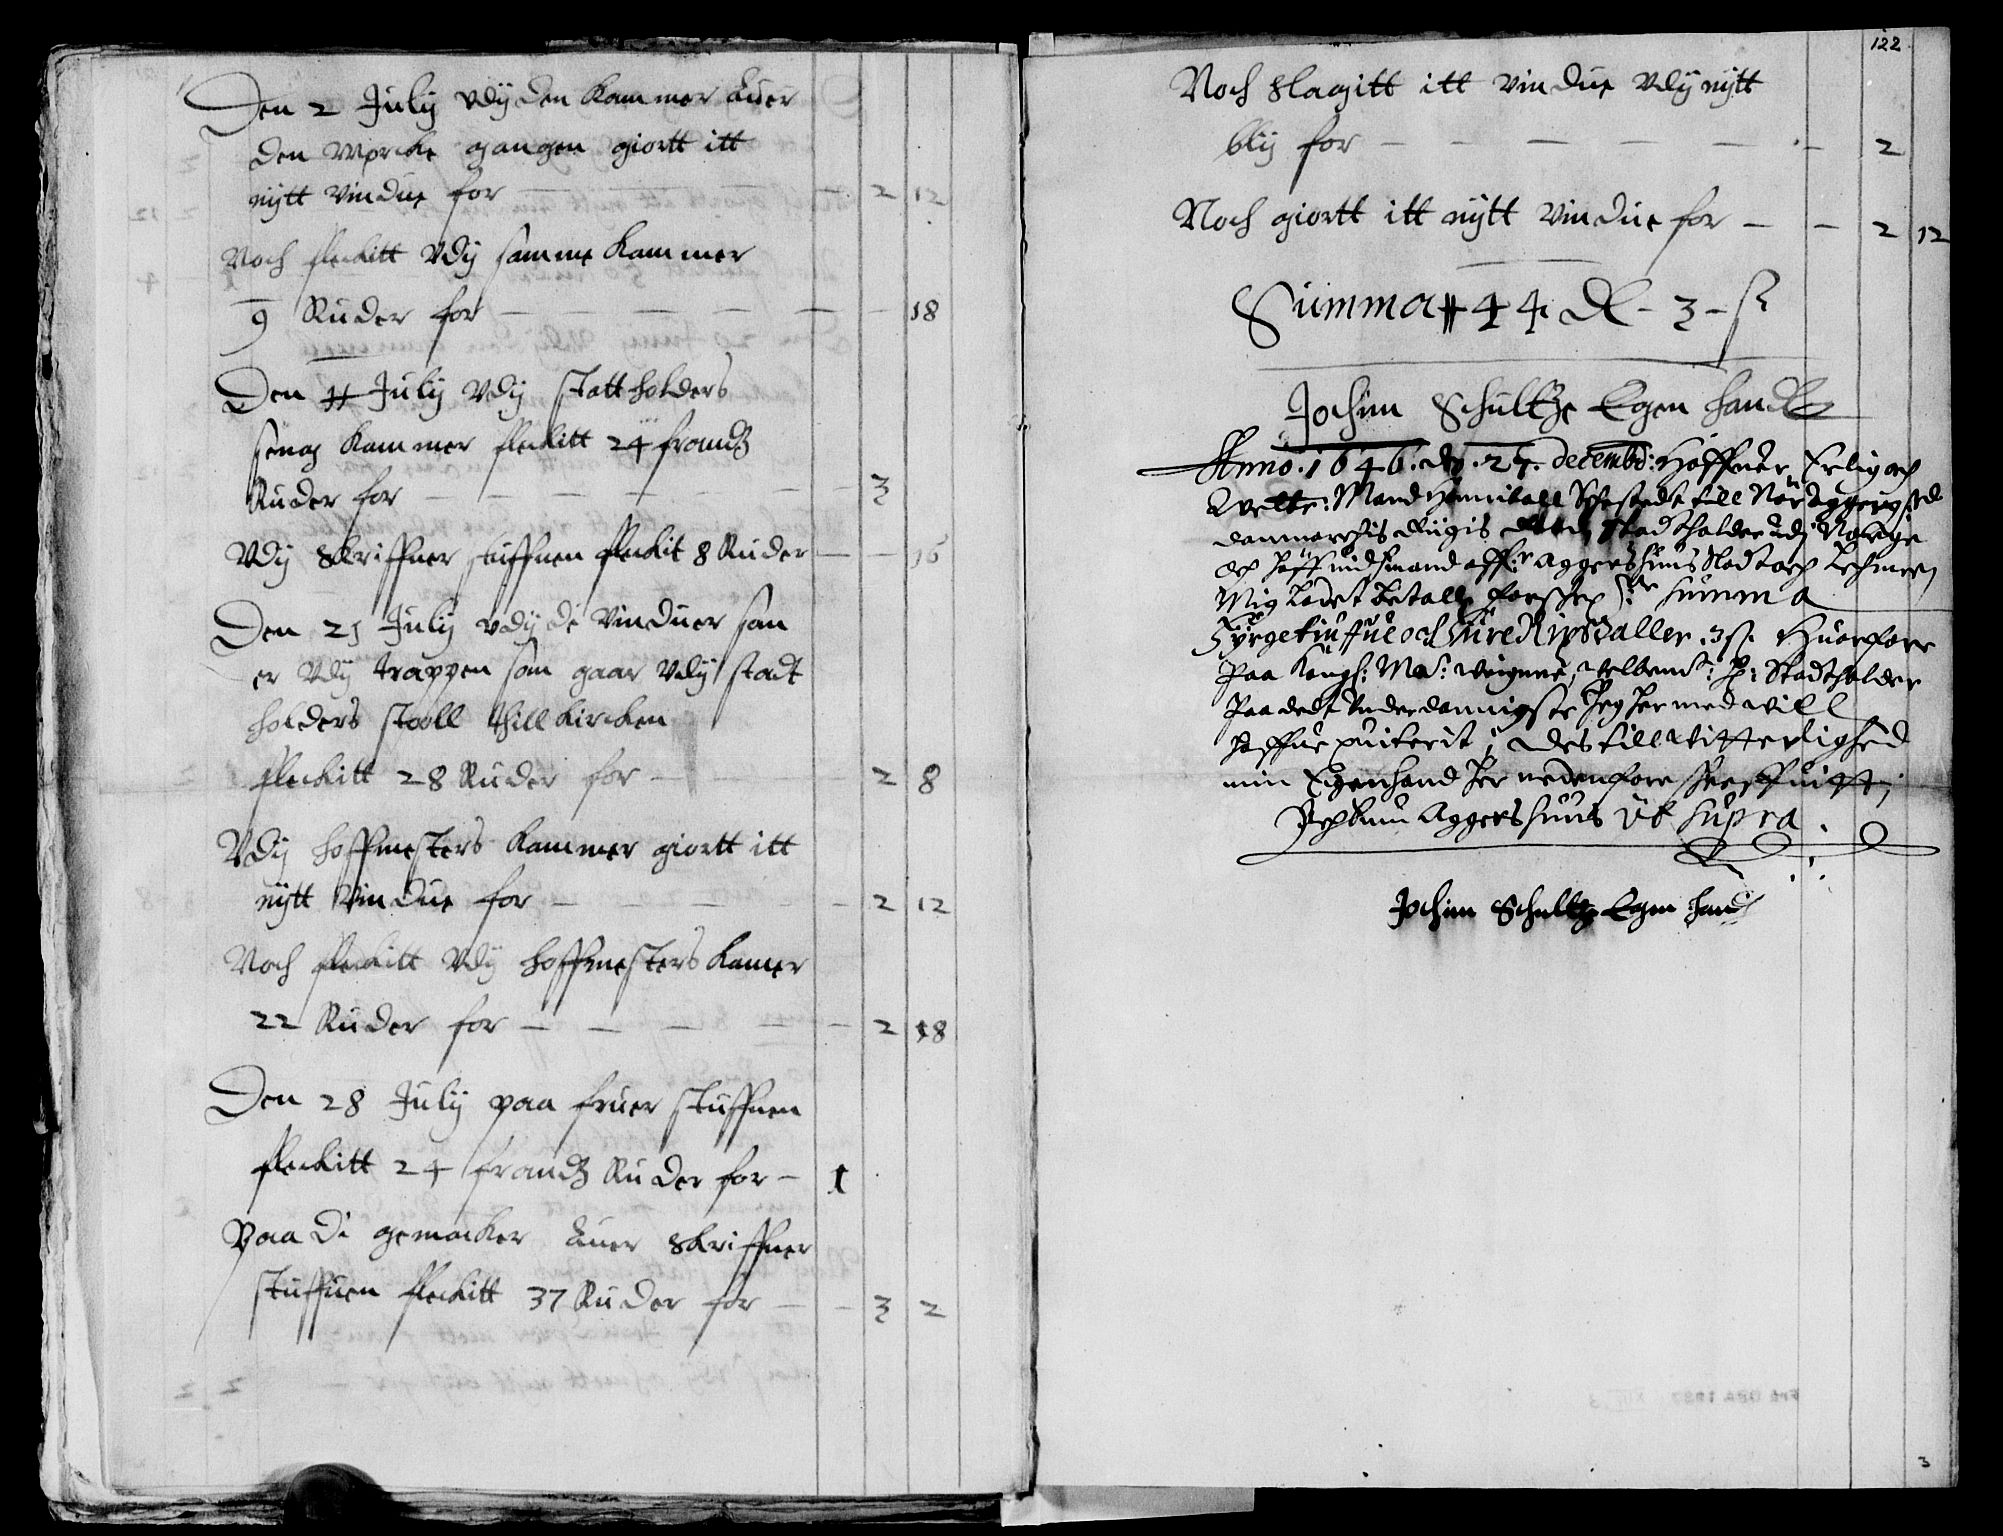 Den 2 July vdy den Kammer Euer
den Mørcke gangen giortt itt
nytt vindue for — — — — 2 12
Noch fleckitt vdy samme Kammer
9 Ruder for — — — — 18
Den 11 July vdy statt holders
senge Kammer fleckitt 24 frandz
Ruder for — — — — 3
Vdy Skriffuer stuffuen fleckit 8 Ruder — — 16
Den 21 July vdy di vinduer san
er vdy trappen som gaar vdy stadt
holders stooll thill kircken
fleckitt 28 Ruder for — — 2 8
Vdy hoffmesters Kammer giortt itt
nytt vindue for — — — — 2 12
Noch fleckitt vdy hoffmesters Kamer
22 Ruder for — — — — 2 18
Den 28 July paa fruer stuffuen
fleckitt 24 frandz Ruder for — 1
Paa di gemacker Euer Skriffuer
stuffuen fleckitt 37 Ruder for — — 3 2
122
Noch slagitt itt vindue vdy nytt
blij for — — — — — 2
Noch giortt itt nytt vindue for — — 2 12
Summa 44 dl - 3 - s
Jochim Schultze Egen handt
Anno . 1646 . den . 27 . decembr: Haffuer Erlig och
Welbr: Mand Hanniball Sehestedt till Nør Aggergd
danmarckis Riigis Stadtholder udj Norge
och Høffuidtzmand offr Aggershuus Slodt och Lehn
Mig ladet betalle forschr: Summa
Fyrgetiufue och fire Ripsdaller . 3 s. Huorfore
paa Kongl: Ma: weigne, welbemt: h: Stadtholder
paa dedt underdannigste Jeg hermed will
haffue quiterit; Des till witterlighed
min Egen hand her nedenfore schreffuitt;
Actum Aggershuus Ut Supra .
Jochim Schultze Egen handt
3